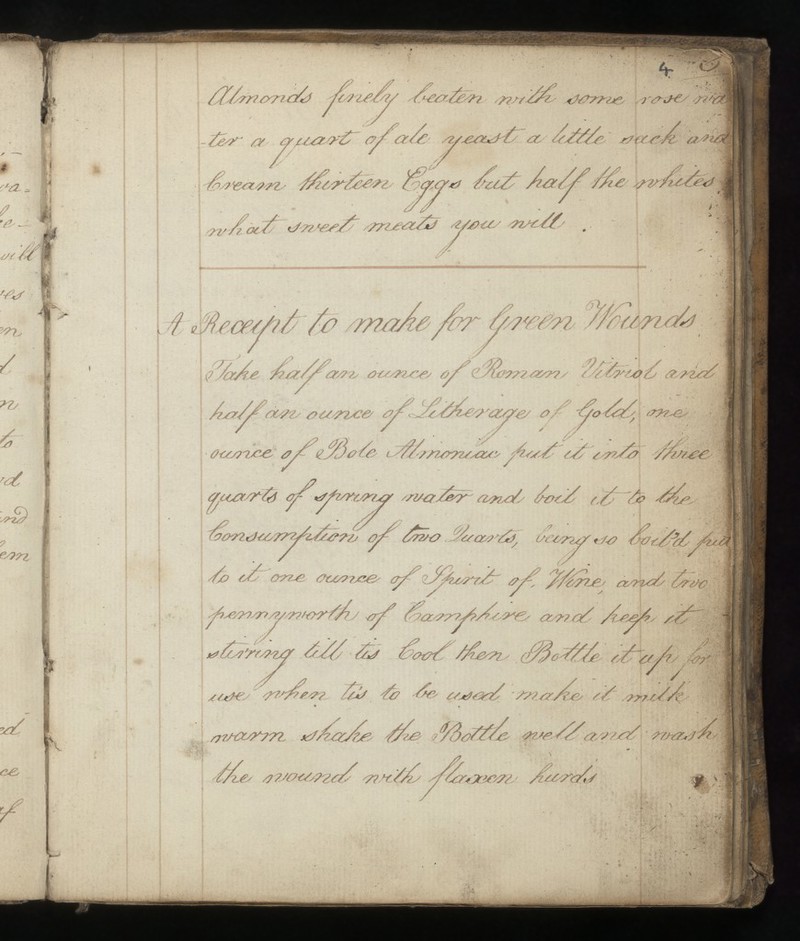 4
Almonds finely beaten with some rose wa
-ter a quart of ale yeast a little sack and
Cream thirteen Eggs but half the whites
what sweet meats you will .
A Receipt to make for Green Wounds
Take half an ounce of Roman Vitriol and
half an ounce of Litherage of Gold, one
ounce of Bole Almoniac put it into three
quarts of spring water and boil it to the
Consumption of two Quarts, being so boil'd put
to it one ounce of Spirit of Wine, and two
pennyworth of Camphire and keep it
stirring till tis Cool then Bottle it up for
use when tis to be used make it milk
warm shake the Bottle well and wash
the wound with flaxen hurds